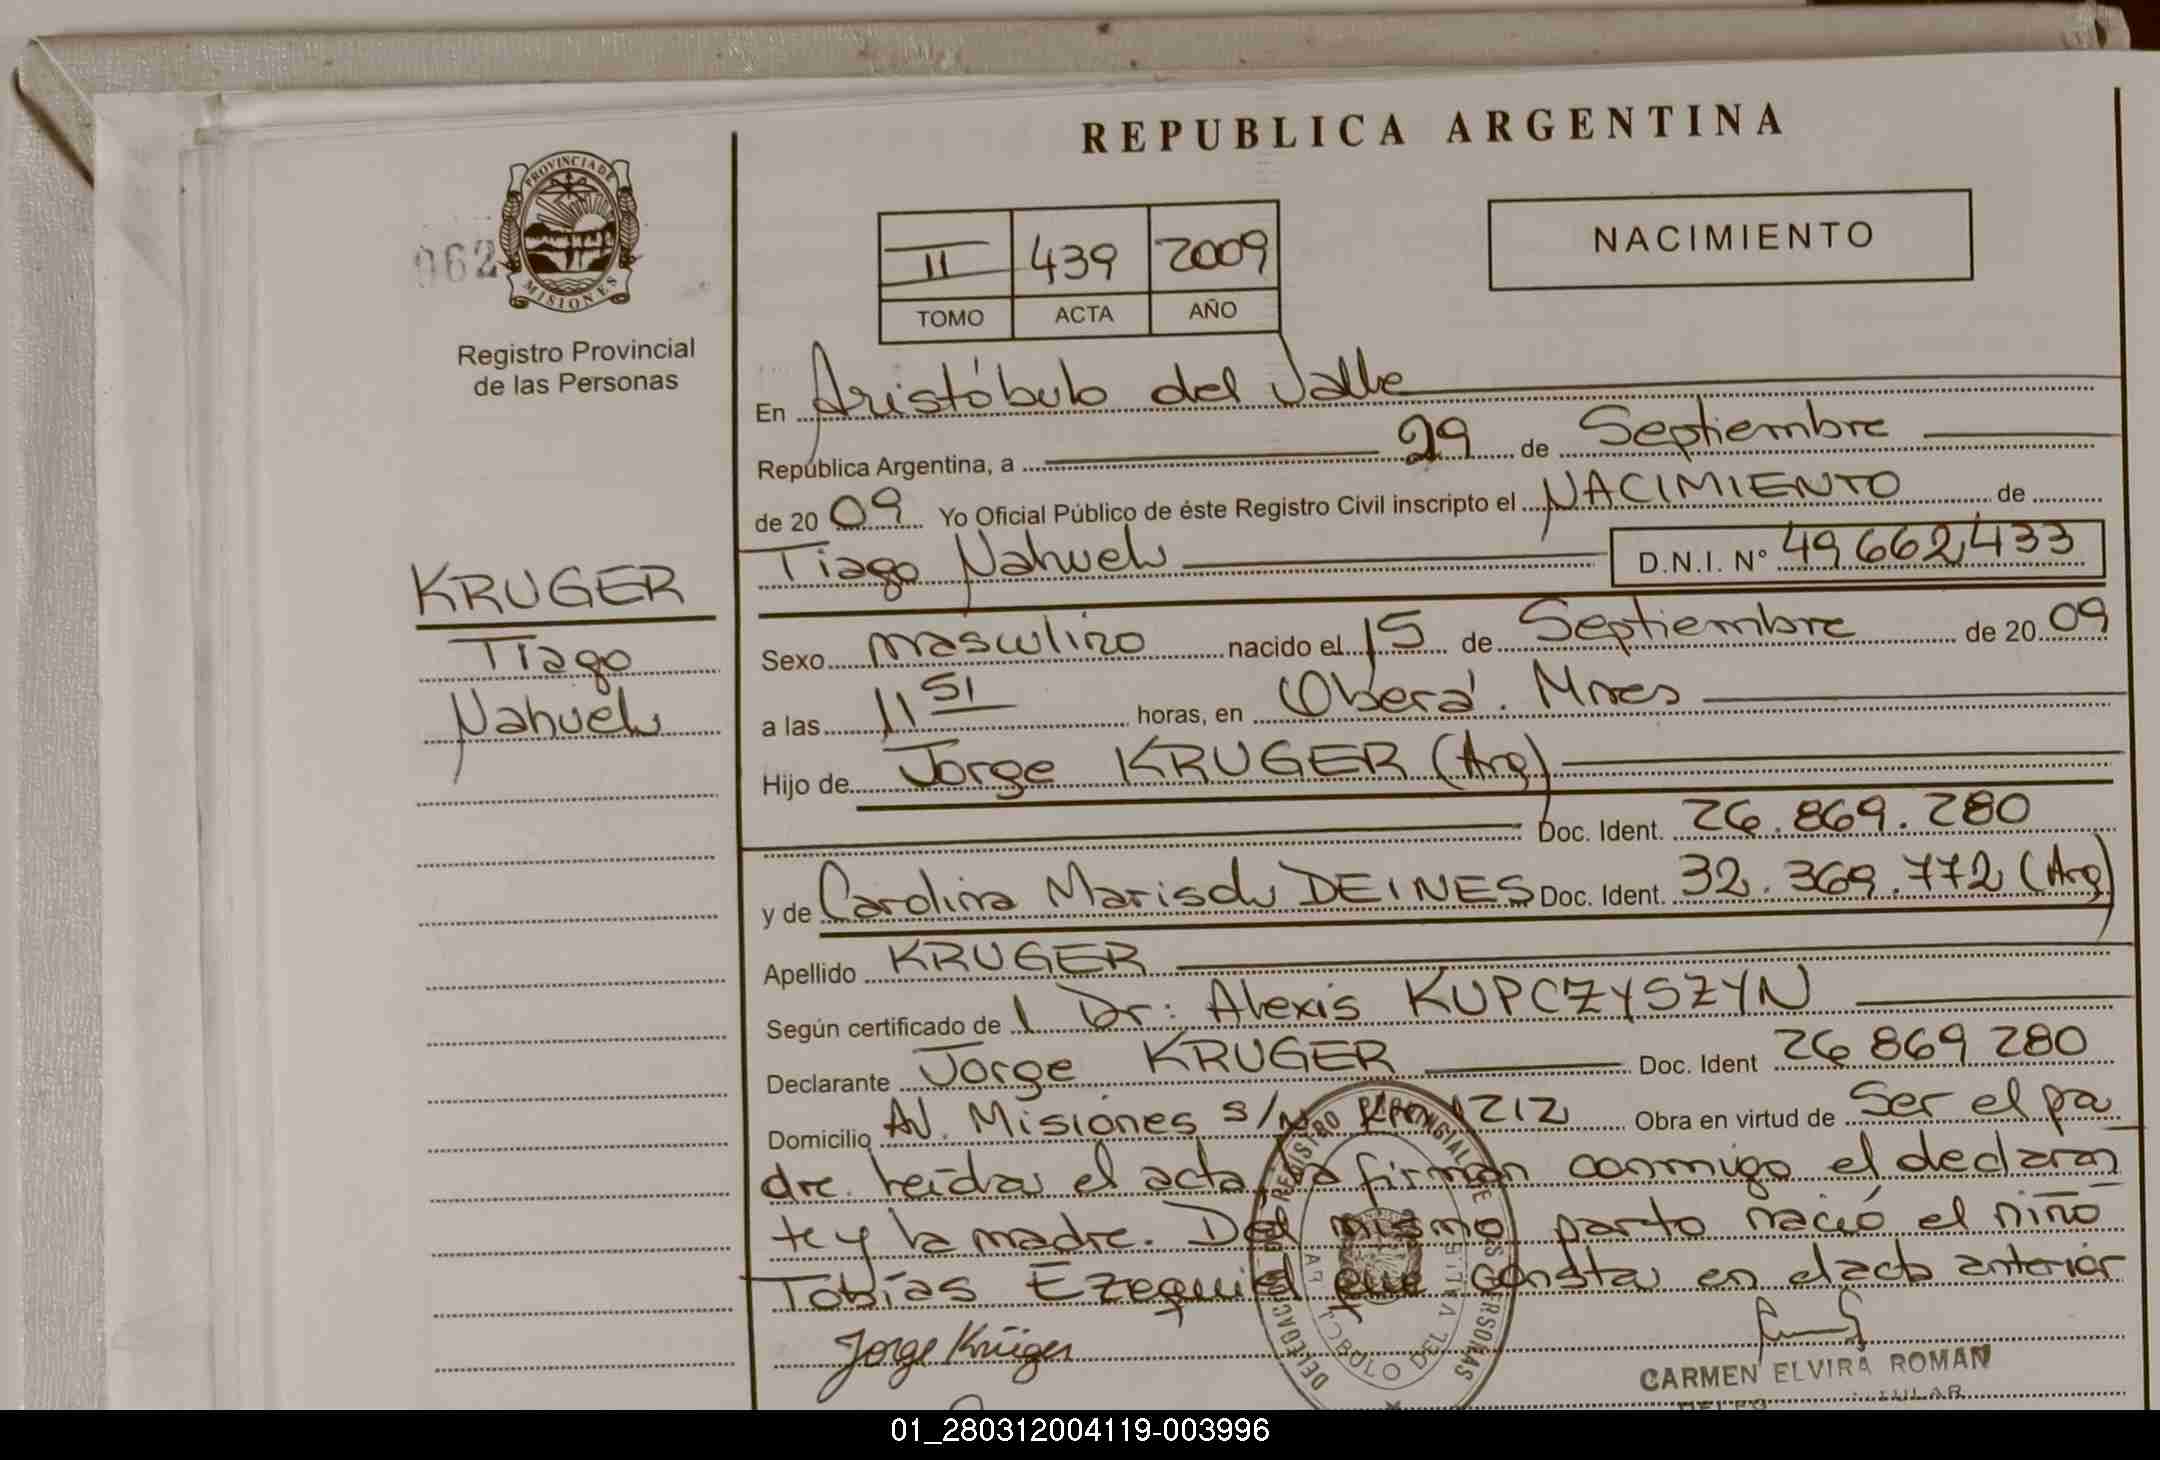 REPUBLICA ARGENTINA
PROVINCIA DE
MISIONES
062
Registro Provincial
de las Personas
NACIMIENTO
II 439 2009
TOMO ACTA AÑO
En Aristóbulo del Valle
República Argentina, a 29 de Septiembre
de 2009 Yo Oficial Público de éste Registro Civil inscripto el NACIMIENTO de
Tiago Nahuel D.N.I. Nº 49.662.433
KRUGER
Tiago
Nahuel
Sexo masculino nacido el 15 de Septiembre de 2009
a las 11 51 horas, en Oberá. Mnes
Hijo de Jorge KRUGER (Arg)
Doc. Ident. 26.869.280
y de Carolina Marisol DEINES Doc. Ident. 32.369.772 (Arg)
Apellido KRUGER
Según certificado de l Dr: Alexis KUPCZYSZYN
Declarante Jorge KRUGER Doc. Ident 26 869 280
Domicilio Av. Misiones s/n Km 1212 Obra en virtud de Ser el pa
dre. Leída el acta, la firman conmigo el declaran
te y la madre. Del mismo parto nació el niño
Tobías Ezequiel que consta en el acta anterior
Jorge Krüger
REGISTRO PROVINCIAL DE LAS PERSONAS
CARMEN ELVIRA ROMAN
01_280312004119-003996